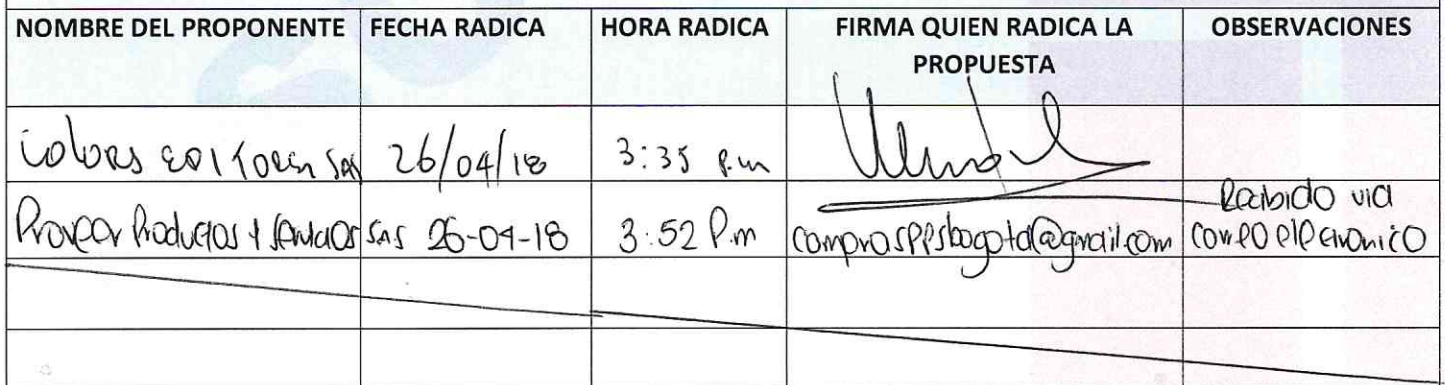 NOMBRE DEL PROPONENTE FECHA RADICA HORA RADICA FIRMA QUIEN RADICA LA PROPUESTA OBSERVACIONES
Colors Editores SAS 26/04/18 3:35 p.m
Proveer Productos y Servicios SAS 26-04-18 3:52 P.m comprasppsbogota@gmail.com Recibido via correo electronico